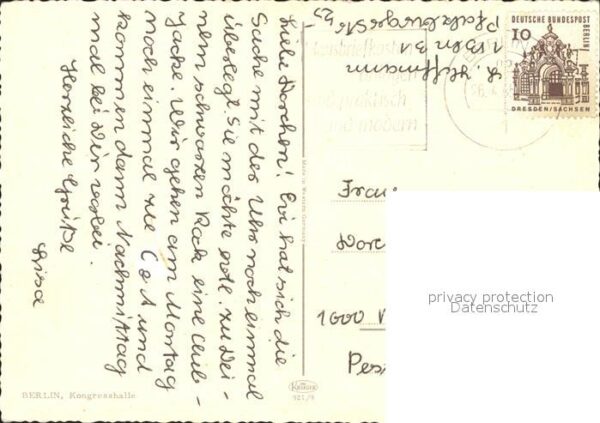 Liebe Dorchen! Evi hat sich die
Sache mit der Uhr noch einmal
überlegt. Sie möchte evtl. zu Dei-
nem schwarzen Rock eine
Jacke. Wir gehen am Montag
noch einmal zu C & A und
kommen dann Nachmittag
mal bei Dir vorbei.
Herzliche Grüße
Lisa
BERLIN, Kongresshalle
Made in Western Germany
KRÜGER
921/8
Hoffmann
1 Bln 31
DEUTSCHE BUNDESPOST
BERLIN
10
DRESDEN/SACHSEN
und praktisch
und modern
1
Frau
Dorc
1000
Pes
privacy protection
Datenschutz